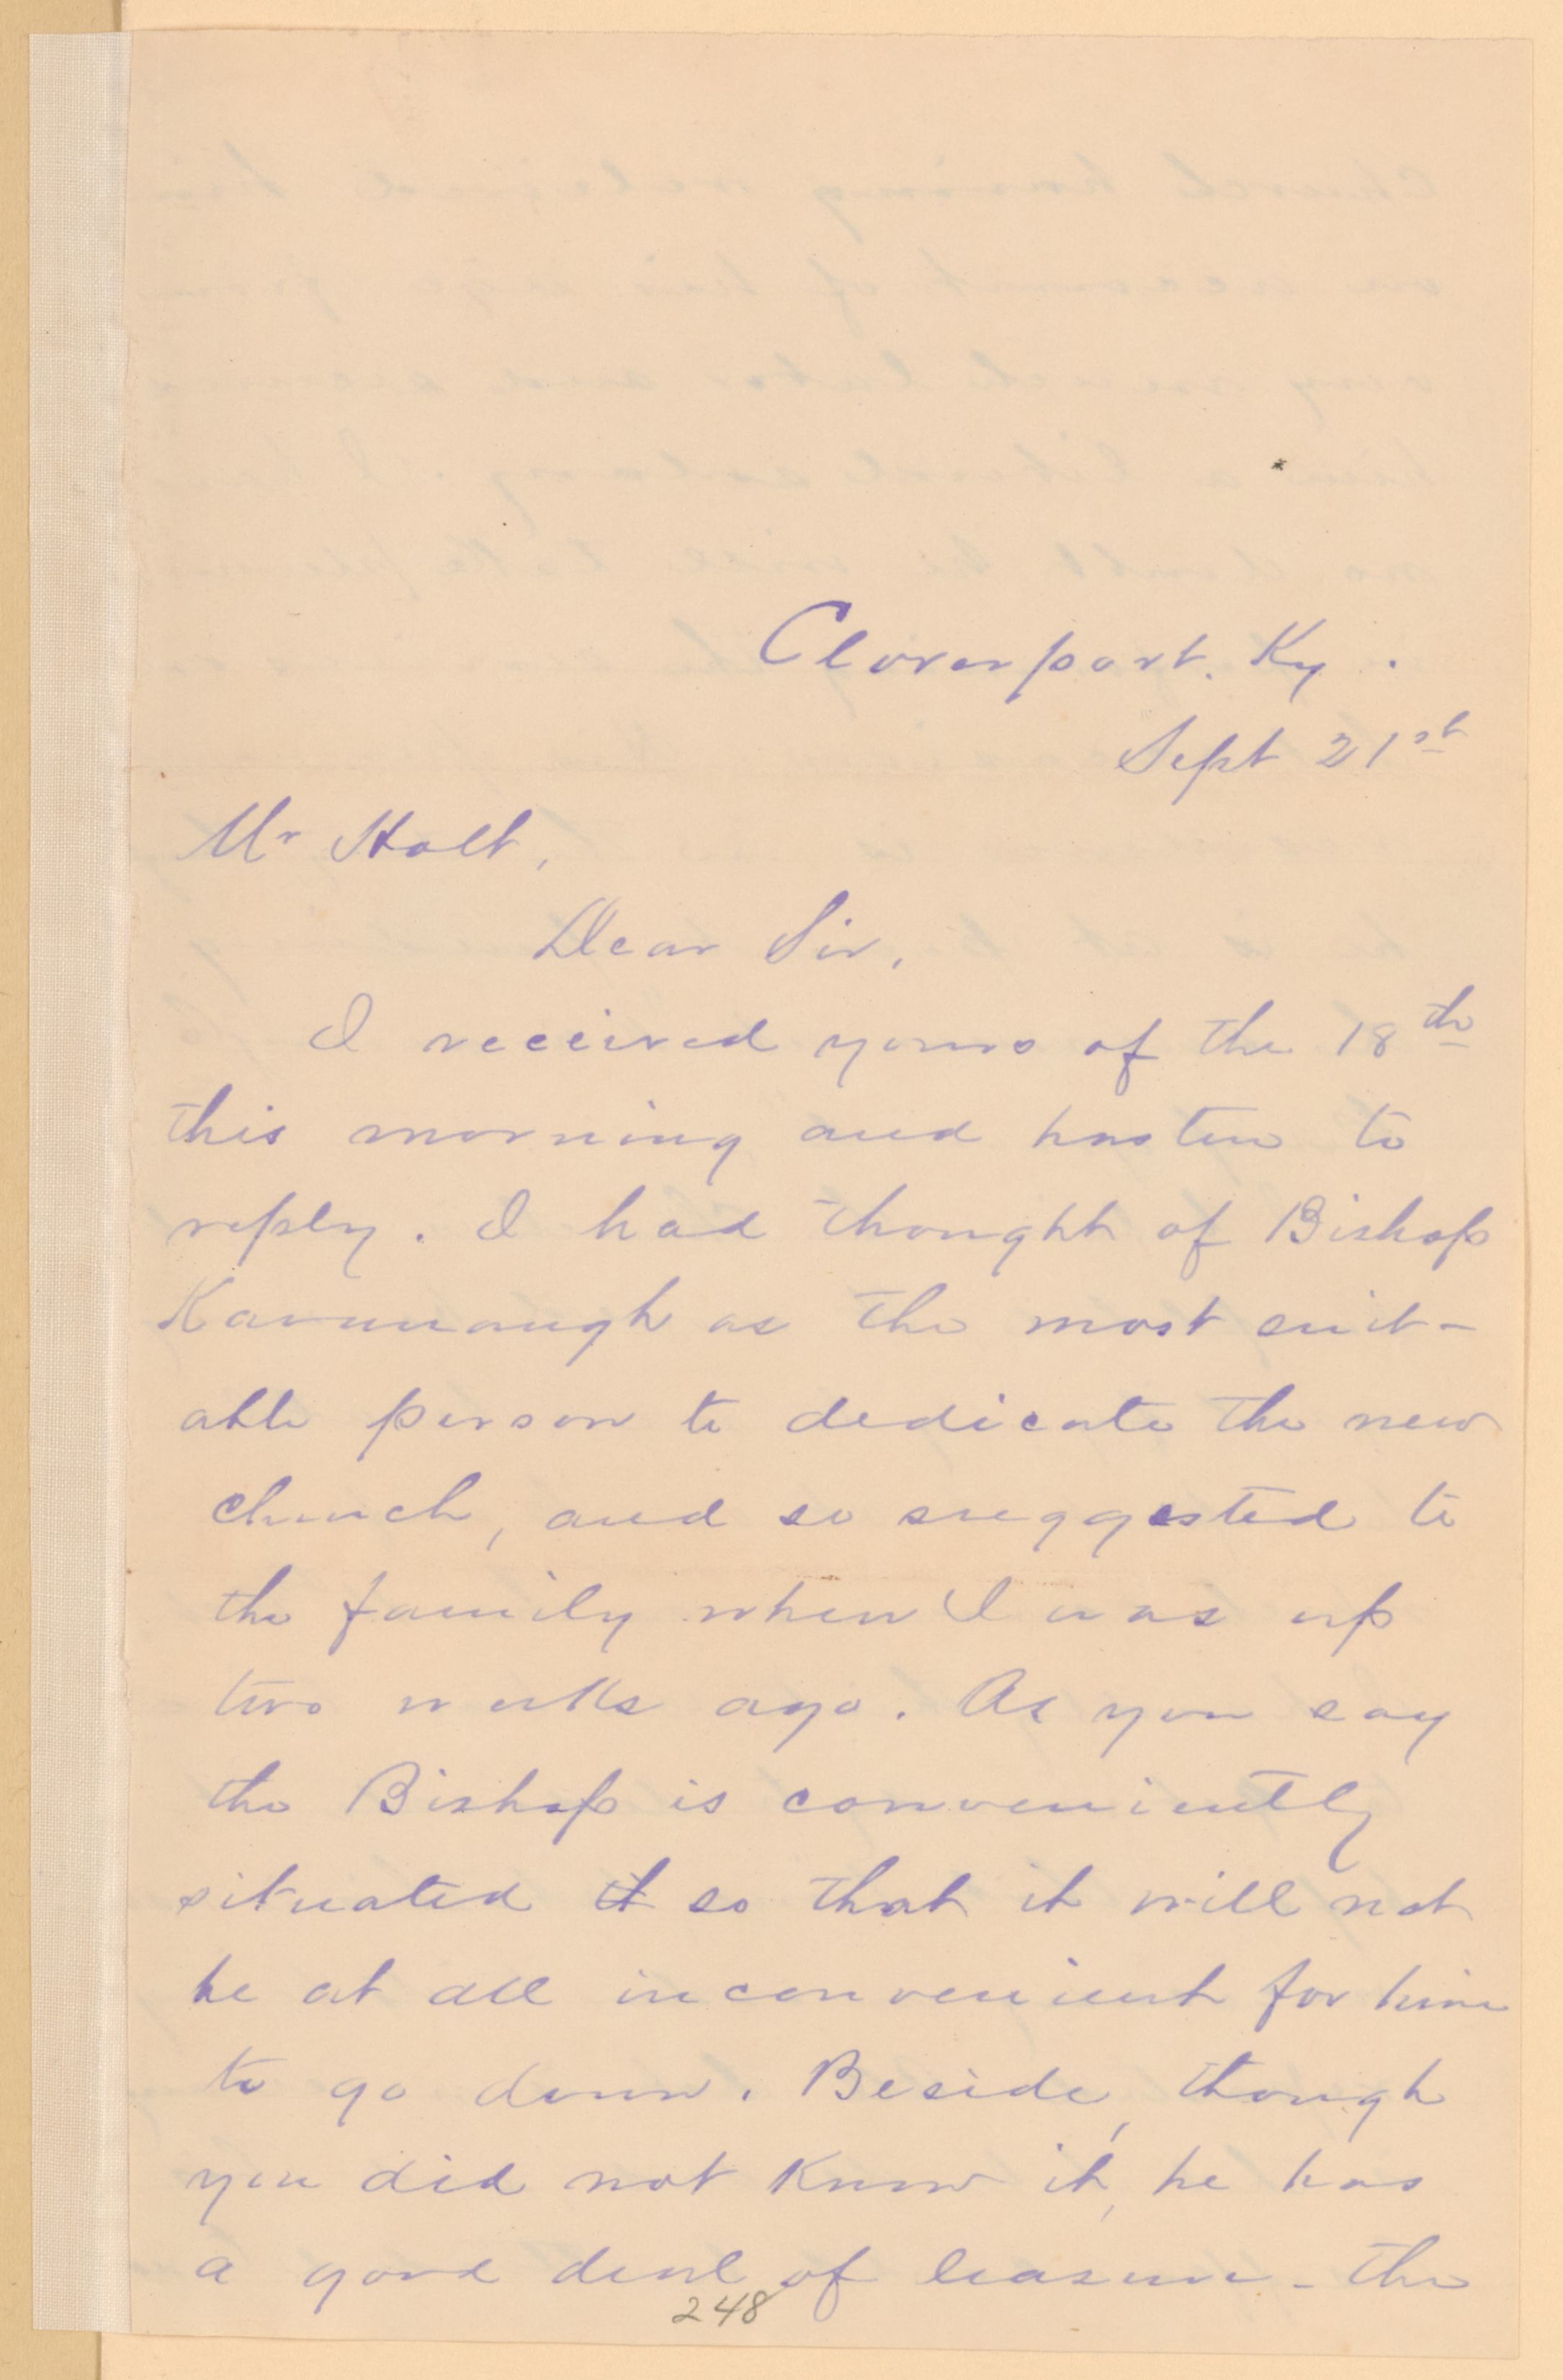 Cloverport, Ky.
Sept 21st
Mr Holt,
Dear Sir,
I received yours of the 18th
this morning and hasten to
reply. I had thought of Bishop
Kavanaugh as the most suit-
able person to dedicate the new
church, and so suggested to
the family when I was up
two weeks ago. As you say
the Bishop is conveniently
situated it so that it will not
be at all inconvenient for him
to go down. Beside, though
you did not know it, he has
a good deal of leasure - the
248